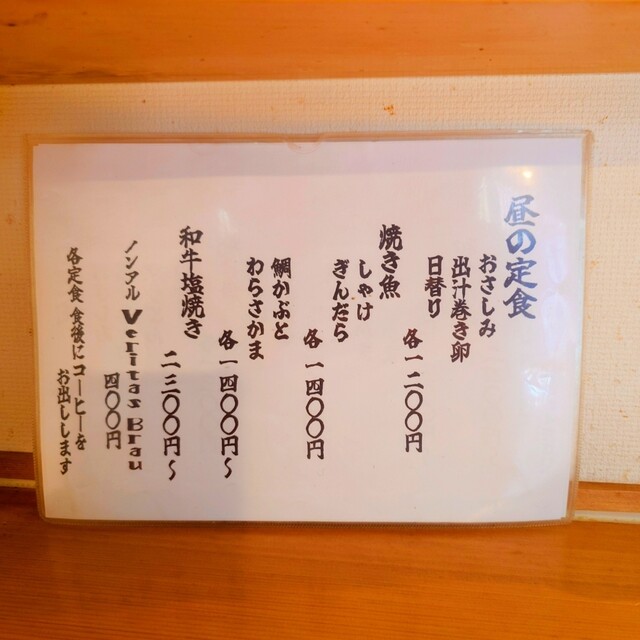 昼の定食
おさしみ
出汁巻き卵
日替り
各一二〇〇円
焼き魚
しゃけ
ぎんだら
各一四〇〇円
鯛かぶと
わらさかま
各一四〇〇円～
和牛塩焼き
二三〇〇円～
ノンアル Veritas Brau
四〇〇円
各定食 食後にコーヒーを
お出しします